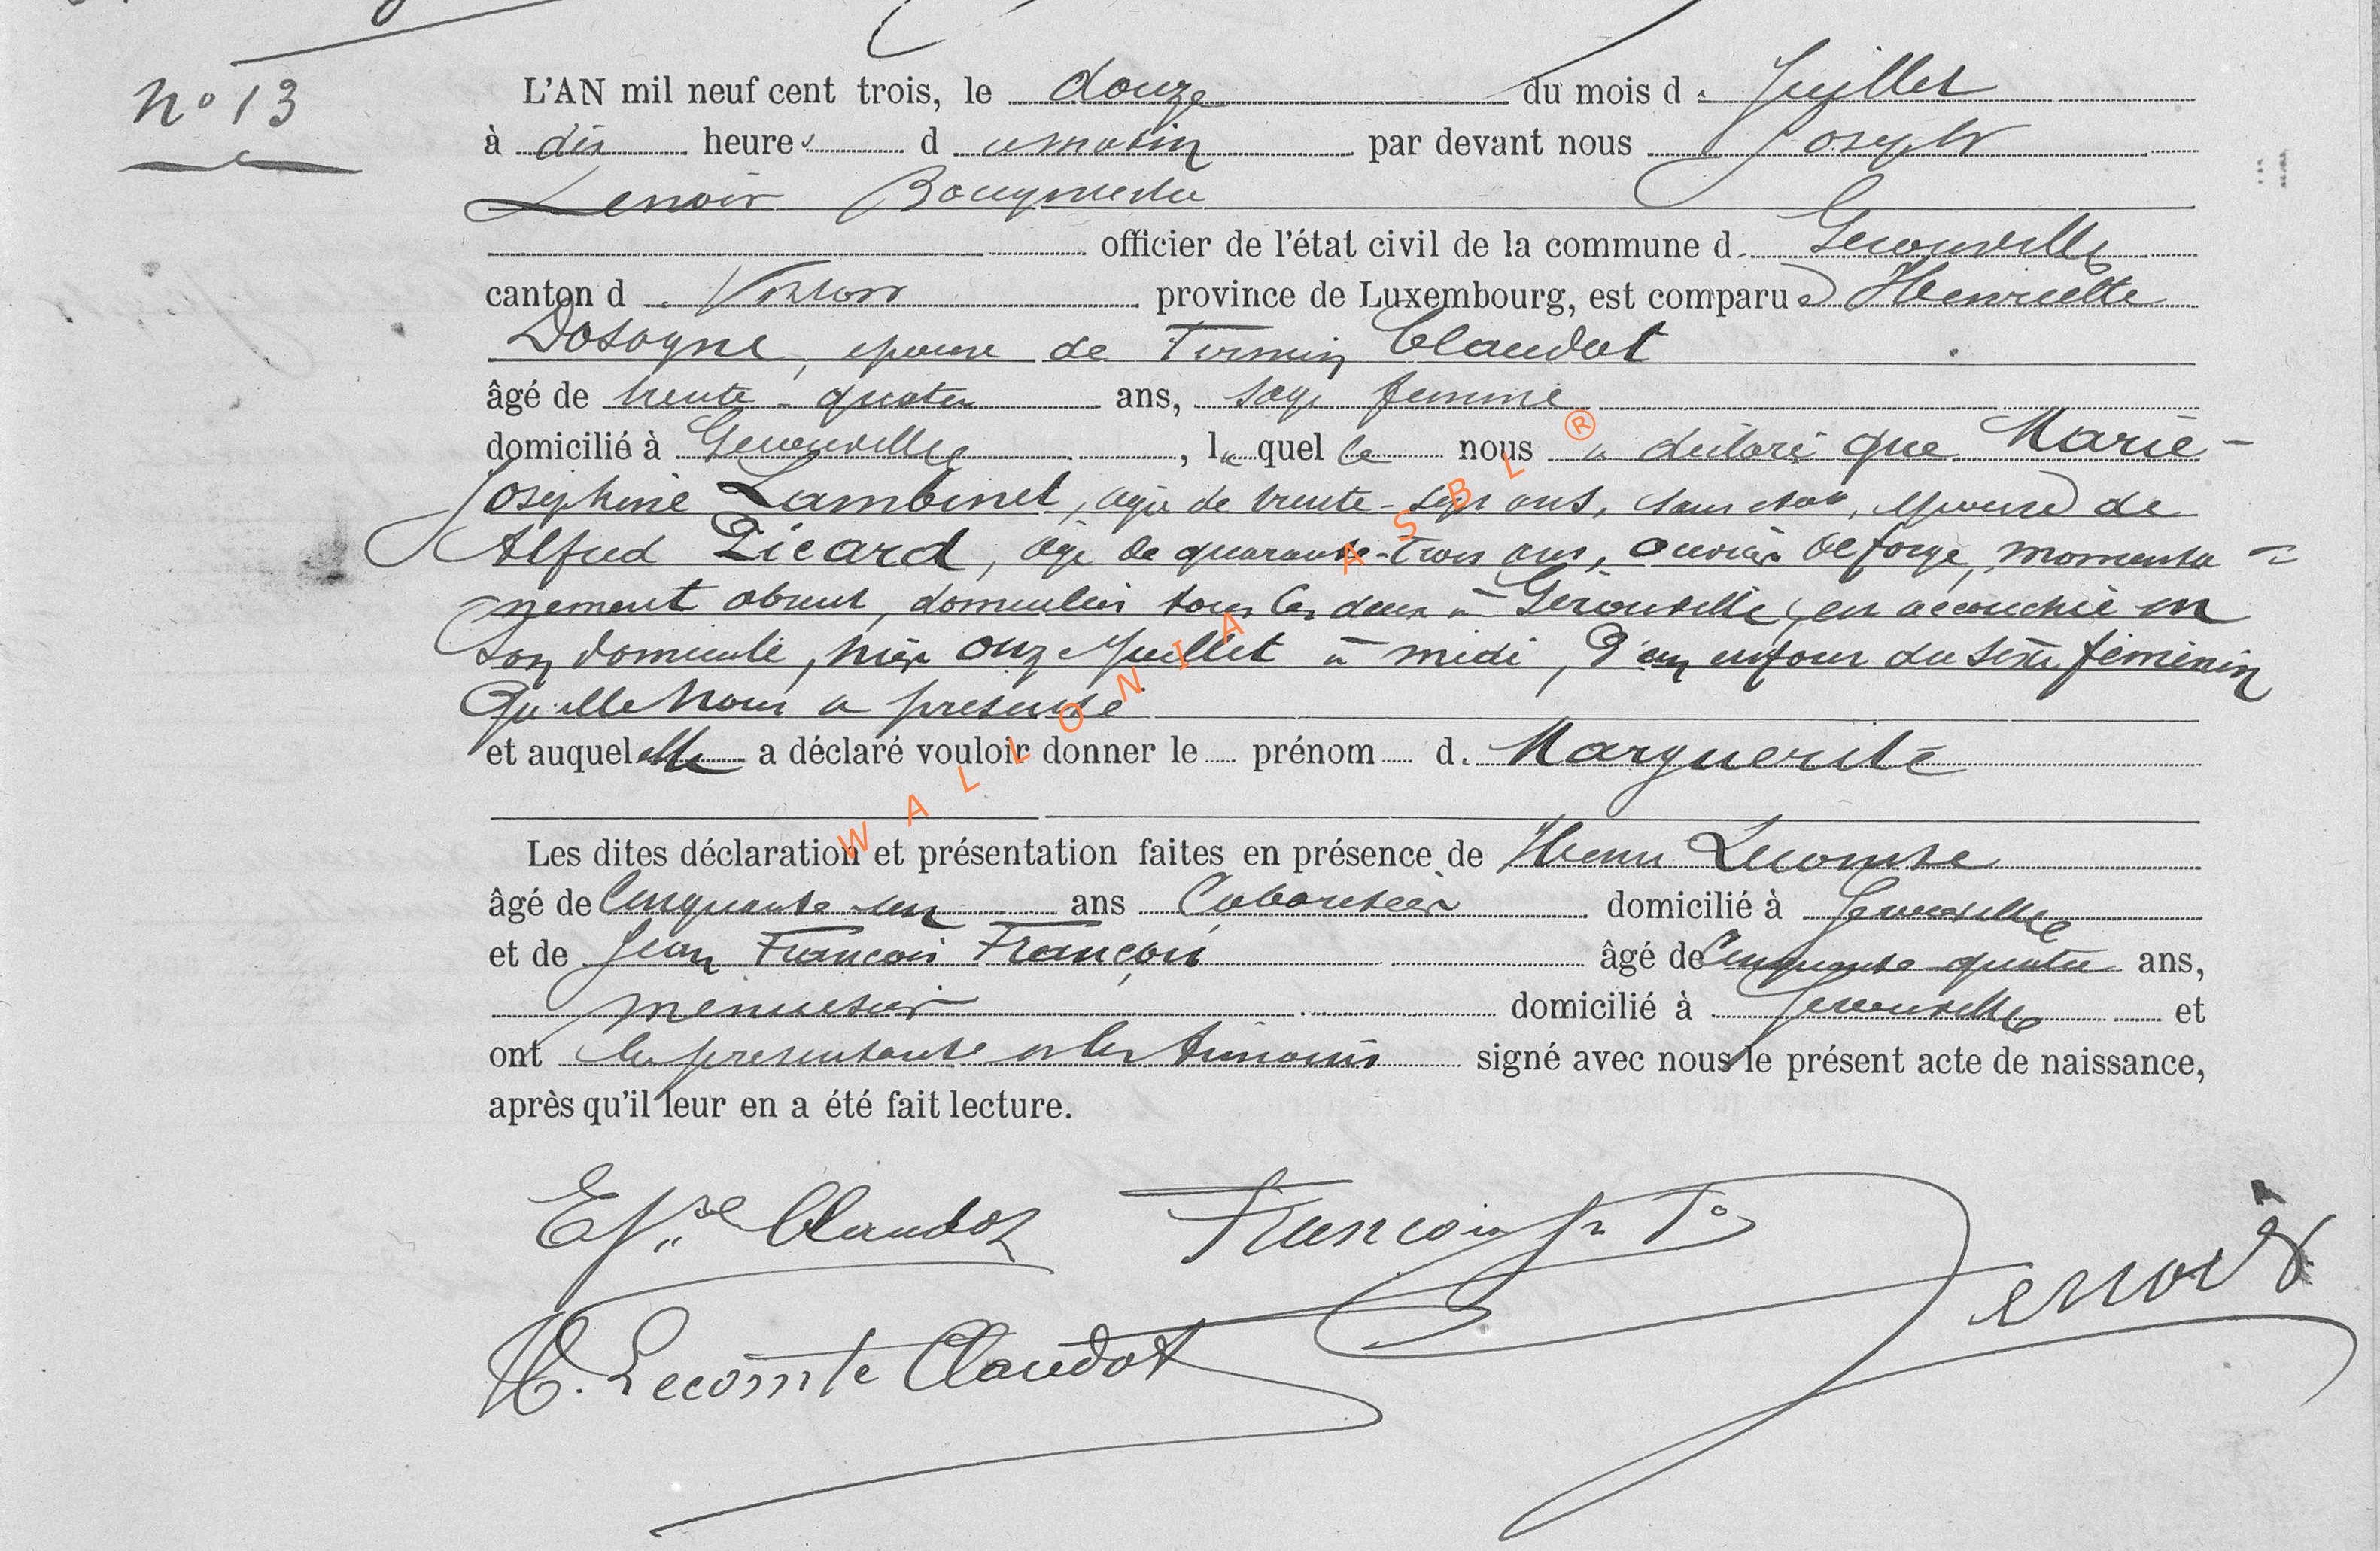 N° 13
L'AN mil neuf cent trois, le douze du mois de Juillet
à dix heures du matin par devant nous Joseph
Lenoir Bourgmestre
officier de l'état civil de la commune de Gerouville
canton de Virton province de Luxembourg, est comparue Henriette
Dosogne, épouse de Firmin Claudot
âgé de trente-quatre ans, sage femme
domicilié à Gerouville, laquelle nous a déclaré que Marie-
Josephine Lambinet, agée de trente-sept ans, sans état, épouse de
Alfred Picard, agé de quarante-trois ans, ouvrier de forge, momenta=
nement absent, domiciliés tous les deux à Gérouville, est accouchée en
son domicile, hier onze Juillet à midi, d'un enfant du sexe féminin
qu'elle nous a présenté
et auquel elle a déclaré vouloir donner le prénom de Marguerite
Les dites déclaration et présentation faites en présence de Henri Lecomte
âgé de Cinquante-un ans Cabaretier domicilié à Gerouville
et de Jean François François âgé de Cinquante quatre ans,
menuisier domicilié à Gerouville et
ont la présentante et les témoins signé avec nous le présent acte de naissance,
après qu'il leur en a été fait lecture.
Ep.se Claudot François Jn Fs
Lenoir
H. Lecomte Claudot
WALLONIA ASBL ®